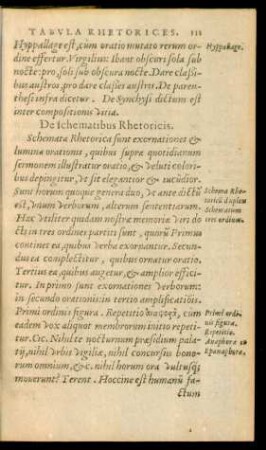 TABVLA RHETORICES. 111
Hyppallage est, cùm oratio mutato rerum or-
dine effertur. Virgilius: Ibant obscuri sola sub
nocte: pro, soli sub obscura nocte. Dare classi-
bus austros, pro dare classes austros. De paren-
thesi infra dicetur. De Synchysi dictum est
inter compositionis vitia.
De schematibus Rhetoricis.
Schemata Rhetorica sunt exornationes &
lumina orationis, quibus supra quotidianum
sermonem illustratur oratio, & veluti colori-
bus depingitur, vt sit elegantior & iucūdior.
Sunt horum quoque genera duo, vt ante dictū
est, vnum verborum, alterum sententiarum.
Hæc vtiliter quidam nostra memoria viri do
cti in tres ordines partiti sunt, quorū Primus
continet ea, quibus verba exornantur. Secun-
dus ea complectitur, quibus ornatur oratio.
Tertius ea, quibus augetur, & amplior effici-
tur. In primo sunt exornationes verborum:
in secundo orationis: in tertio amplificatiōis.
Primi ordinis figura. Repetitio cum
eadem vox aliquot membrorum initio repeti
tur. Cic. Nihil te nocturnum præsidium pala-
tij, nihil vrbis vigiliæ, nihil concursus bono-
rum omnium, &c. nihil horum ora vultusq́;
mouerunt? Terent. Hoccine est humanū fa-
ctum
Hyppallage.
Schema Rhe-
toricū duplex
Schematum
tres ordines.
Primi ordi-
nis figura.
Repetitio.
Anaphora &
Epanaphora.